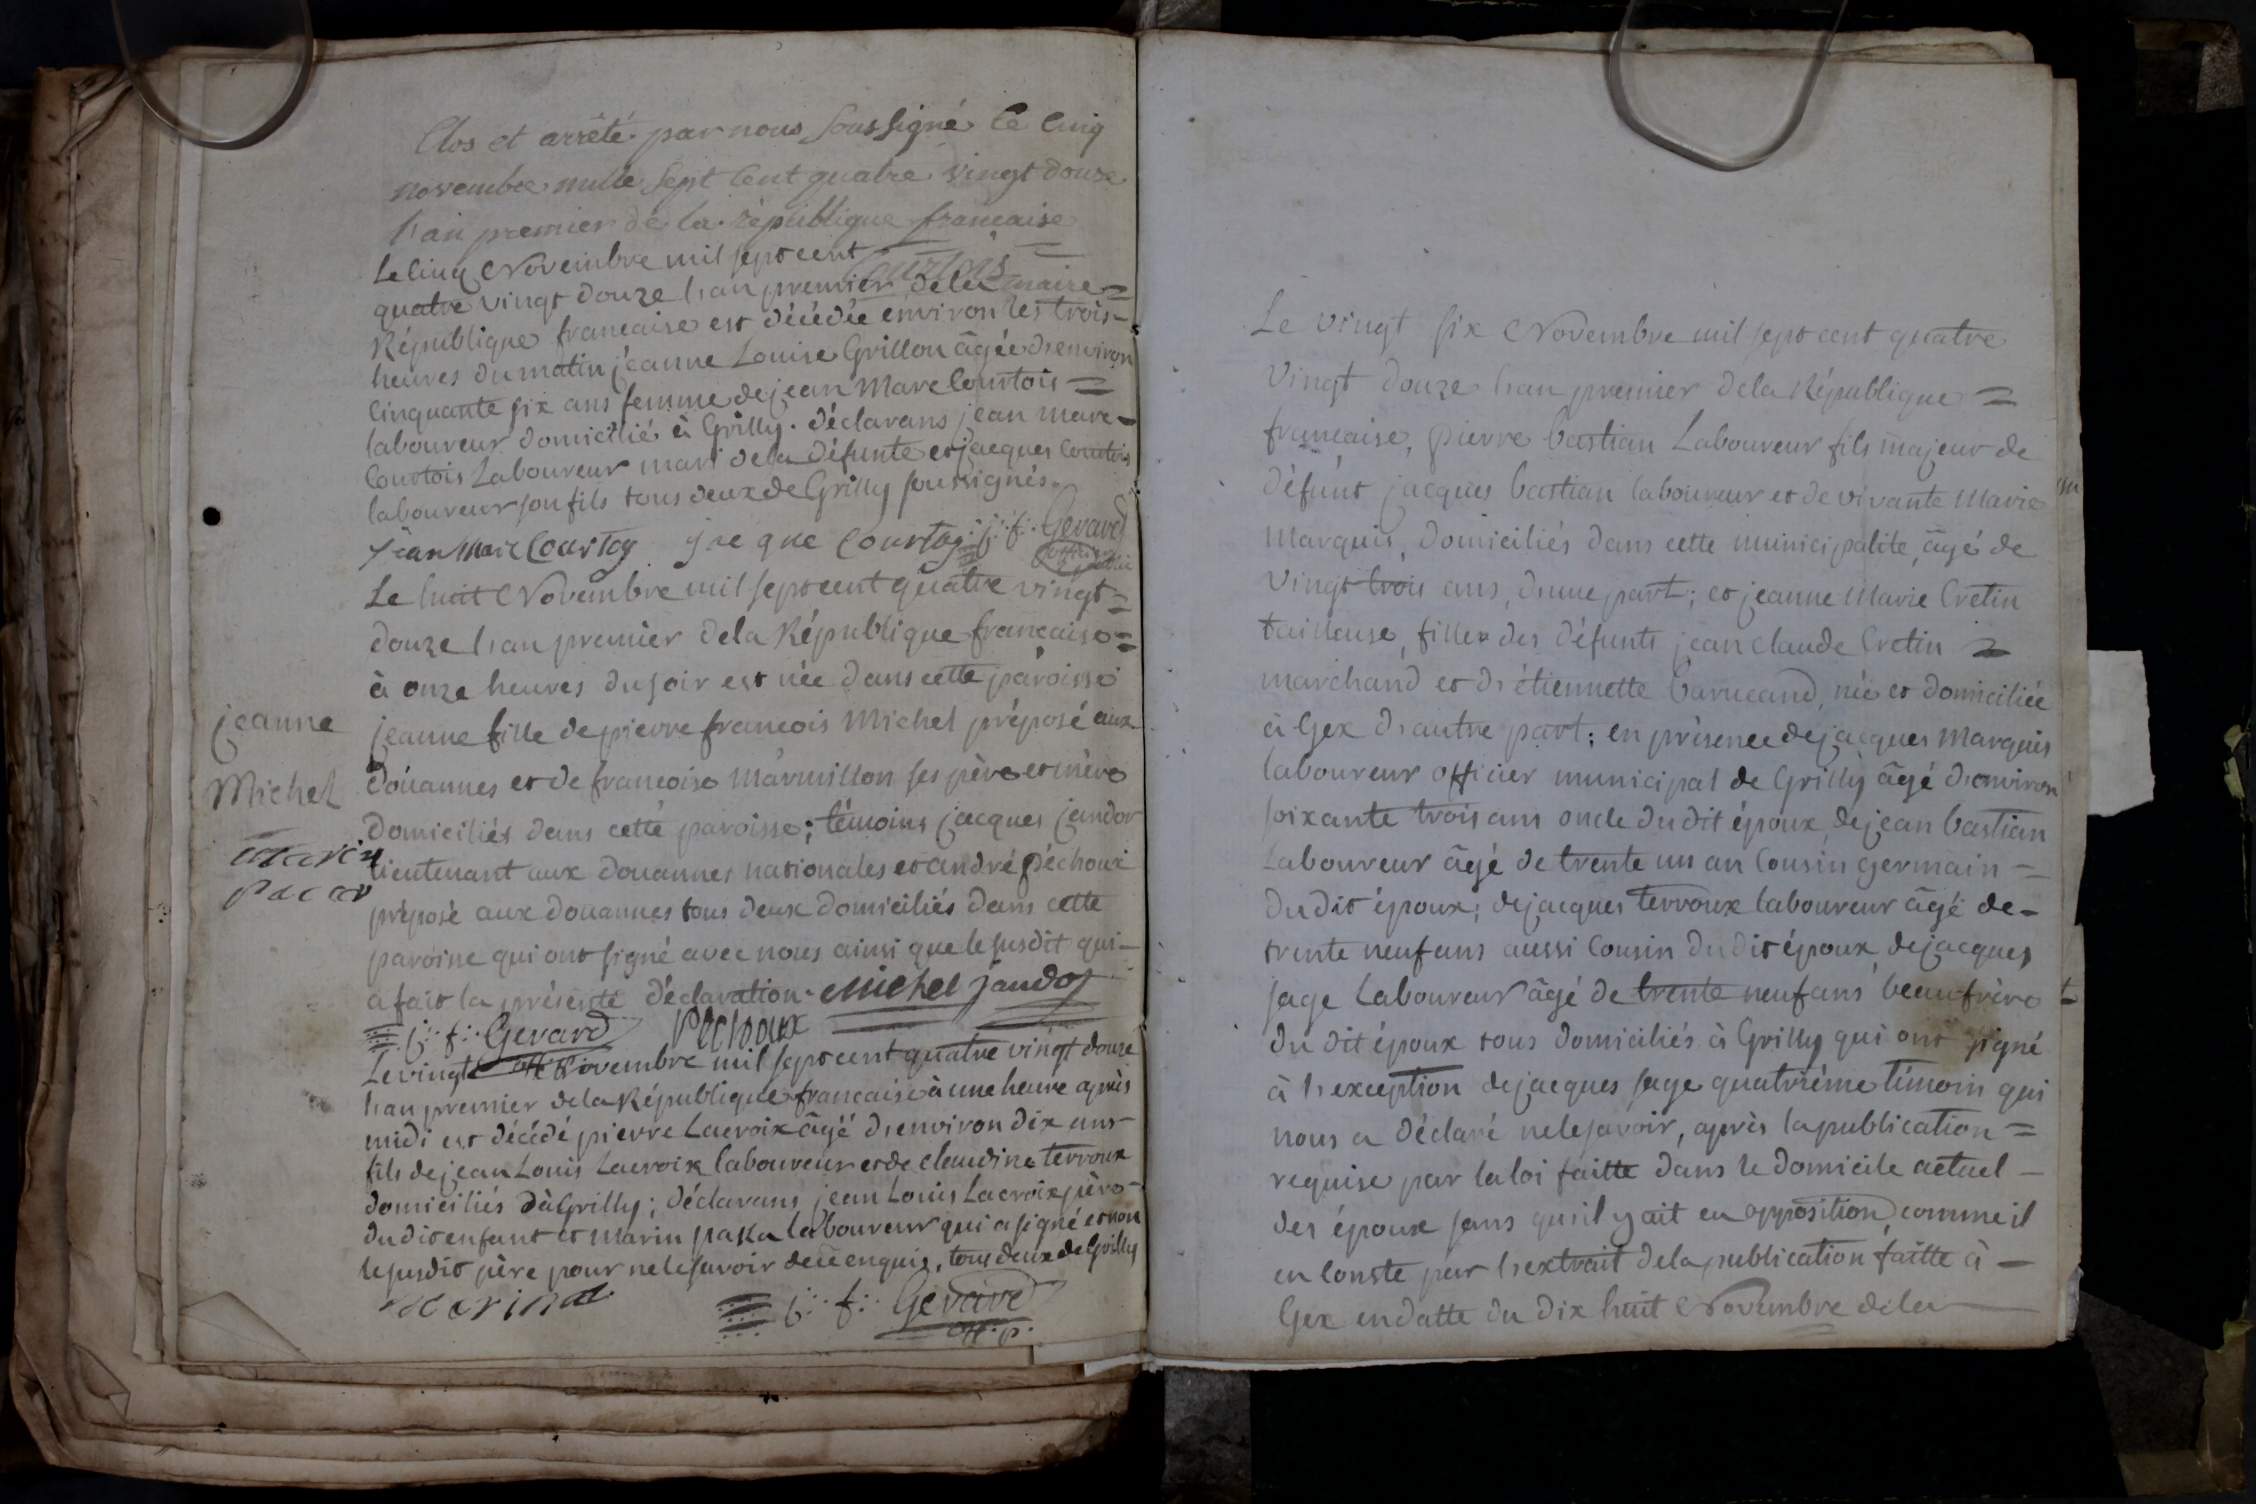 Clos et arrêté par nous soussigné le cinq
novembre mille sept cent quatre vingt douze
l'an premier de la république française
Courtois maire
Le cinq Novembre mil sept cent
quatre vingt douze l'an premier de la
République francaise est décédée environ les trois
heures du matin jeanne Louise Grillon âgée d'environ
cinquante six ans femme de jean Marc Courtois =
laboureur domicilié à Grilly. déclarans jean marc
Courtois Laboureur mari de la défunte et jacques Courtois
laboureur son fils tous deux de Grilly soussignés.
jean Marc Courtoy jacque Courtoy j: f: Gerard
officier public
Le huit Novembre mil sept cent quatre vingt =
douze l'an premier de la République francaise =
à onze heures du soir est née dans cette paroisse
jeanne
jeanne fille de pierre francois Michel préposé aux
Michel
douannes et de francoise Marmillon ses père et mère
domiciliés dans cette paroisse; témoins jacques jandot
marin
lieutenant aux douannes nationales et andré péchoux
pacar
préposé aux douannes tous deux domiciliés dans cette
paroisse qui ont signé avec nous ainsi que le susdit qui
a fait la présente déclaration. Michel jandot
j: f: Gerard Pechoux
Le vingt Novembre mil sept cent quatre vingt douze
l'an premier de la République francaise à une heure après
midi est décédé pierre Lacroix âgé d'environ dix ans
fils de jean Louis Lacroix laboureur et de claudine terroux
domiciliés à Grilly; déclarans jean Louis Lacroix père
du dit enfant et Marin paka laboureur qui a signé et non
le susdit père pour ne le savoir de ce enquis, tous deux de Grilly
j: f: Gerard
off. p.
Le vingt six Novembre mil sept cent quatre
vingt douze l'an premier de la République =
francaise, pierre bastian Laboureur fils majeur de
défunt jacques bastian laboureur et de vivante Marie
Marquis, domiciliés dans cette municipalite, âgé de
vingt trois ans, d'une part; et jeanne Marie Cretin
tailleuse, fille des défunts jean claude Cretin =
marchand et d'étiennette baruand, née et domiciliée
à Gex d'autre part; en présence de jacques Marquis
laboureur officier municipal de Grilly âgé d'environ
soixante trois ans oncle du dit époux, de jean bastian
Laboureur âgé de trente un an cousin germain =
du dit époux; de jacques terroux laboureur âgé de
trente neuf ans aussi cousin du dit époux, de jacques
sage Laboureur âgé de trente neuf ans beau frère
du dit époux tous domiciliés à Grilly qui ont signé
à l'exception de jacques sage quatrième témoin qui
nous a déclaré ne le savoir, après la publication =
requise par la loi faitte dans le domicile actuel
des époux sans qu'il y ait eu opposition, comme il
en conste par l'extrait de la publication faitte à
Gex en datte du dix huit Novembre de la